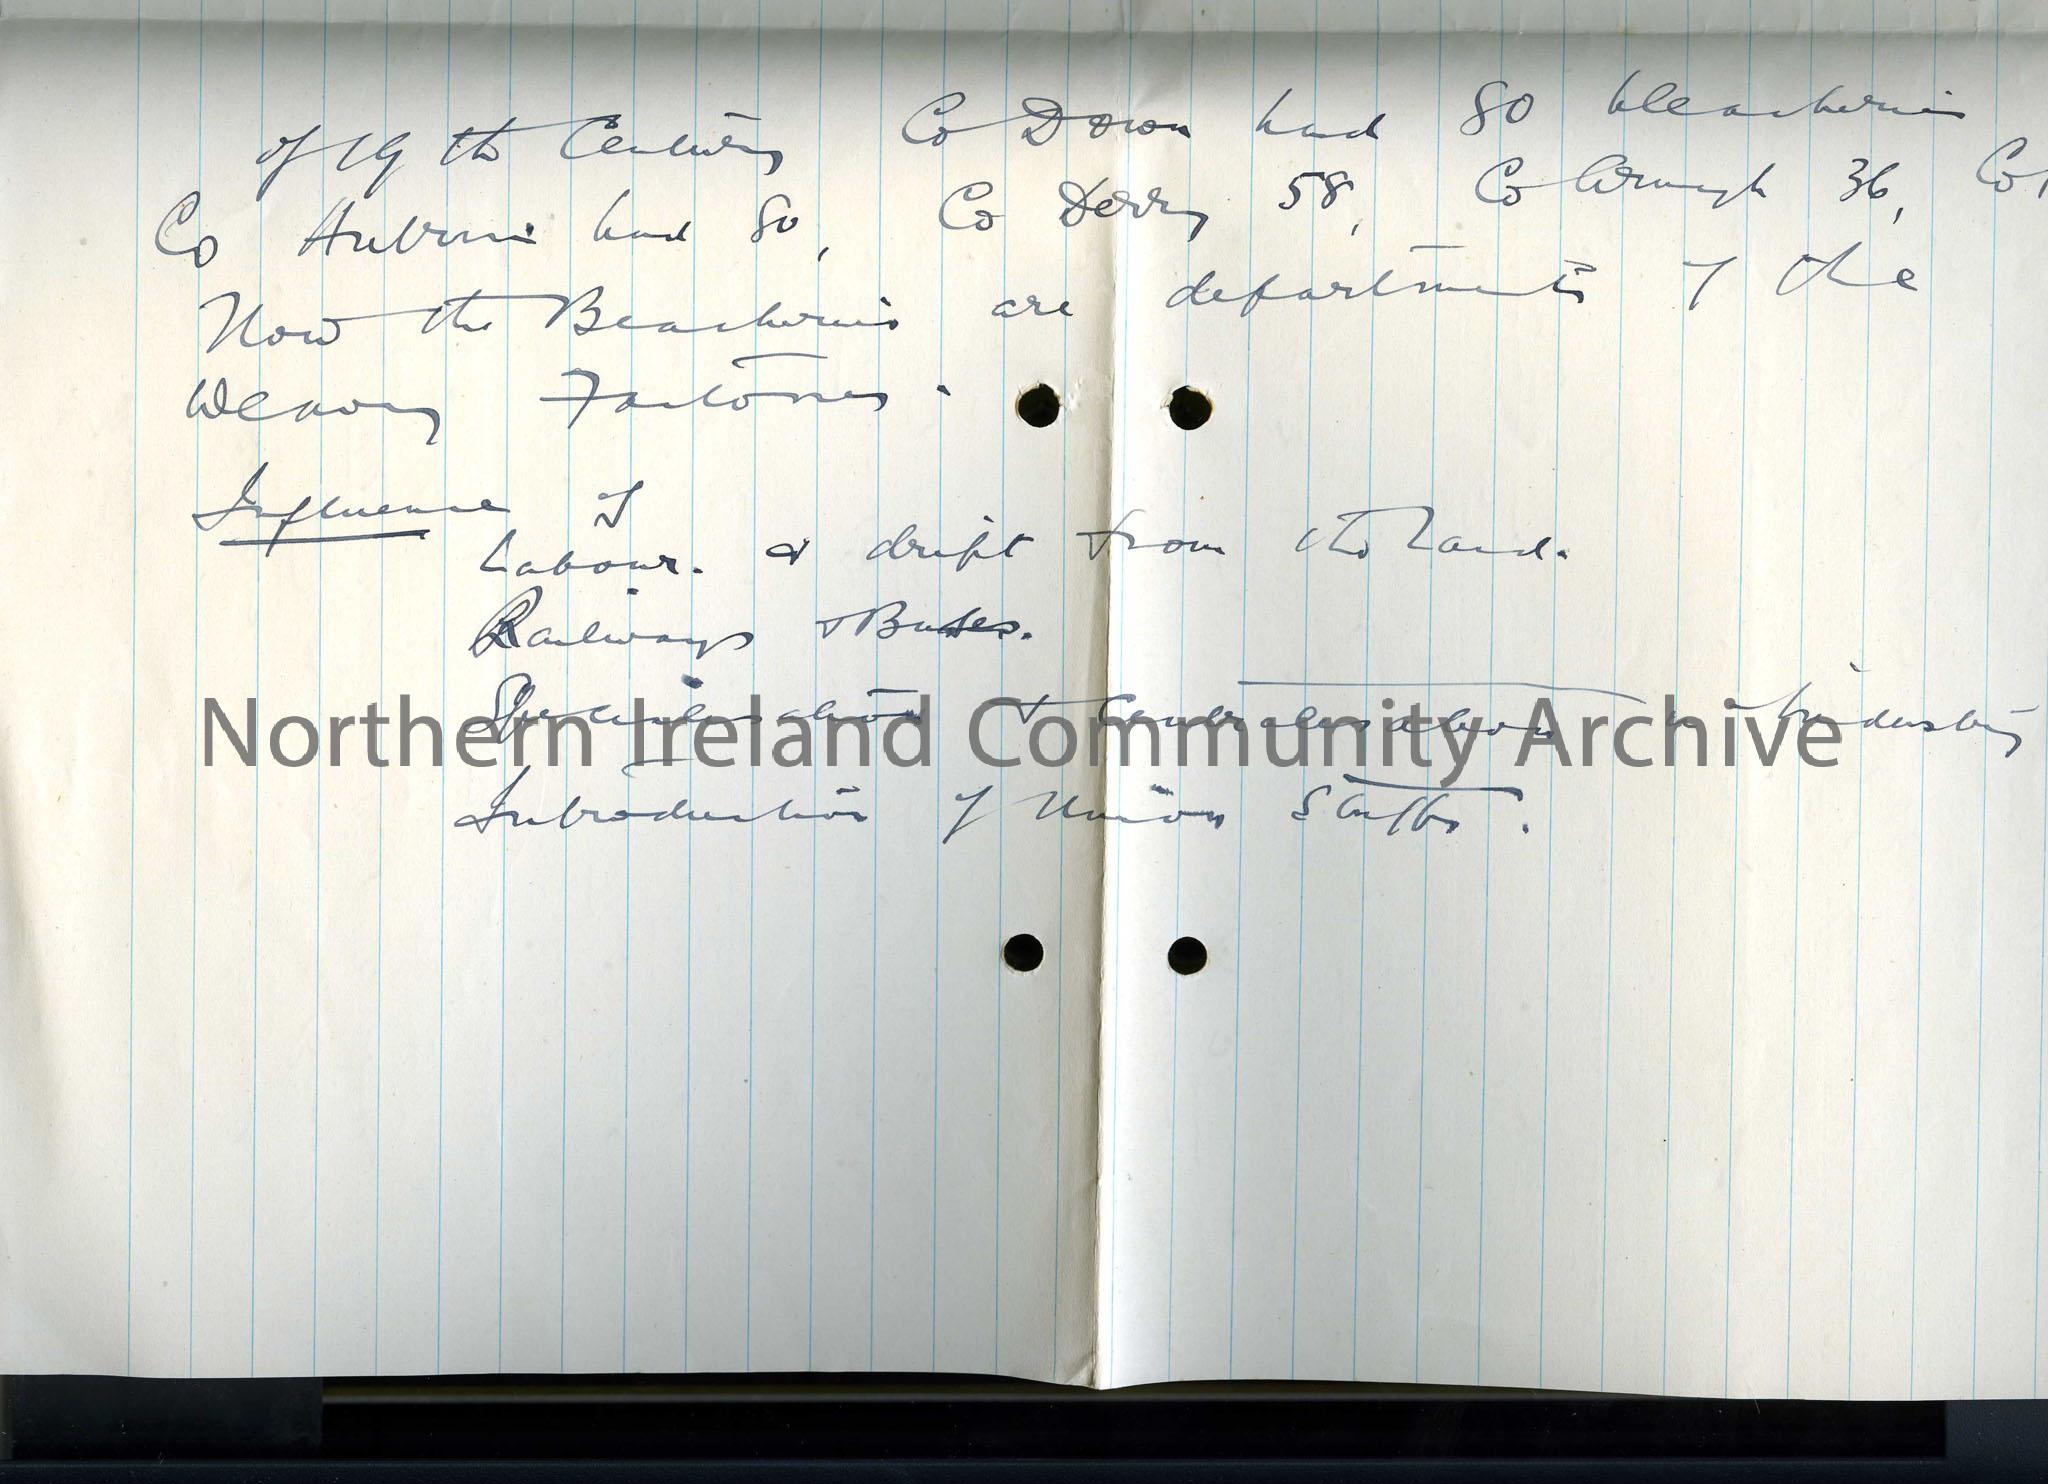 of 19th Century Co Down had 80 bleacheries
Co Antrim had 80, Co Derry 58, Co Armagh 36, Co
Now the Beacheries are departments of the
Weaving Factories.
Influence of
Labour. & drift from the land.
Railways & Buses.
Specialisation & Centralisation in industry
Introduction of Union Stuffs.
Northern Ireland Community Archive